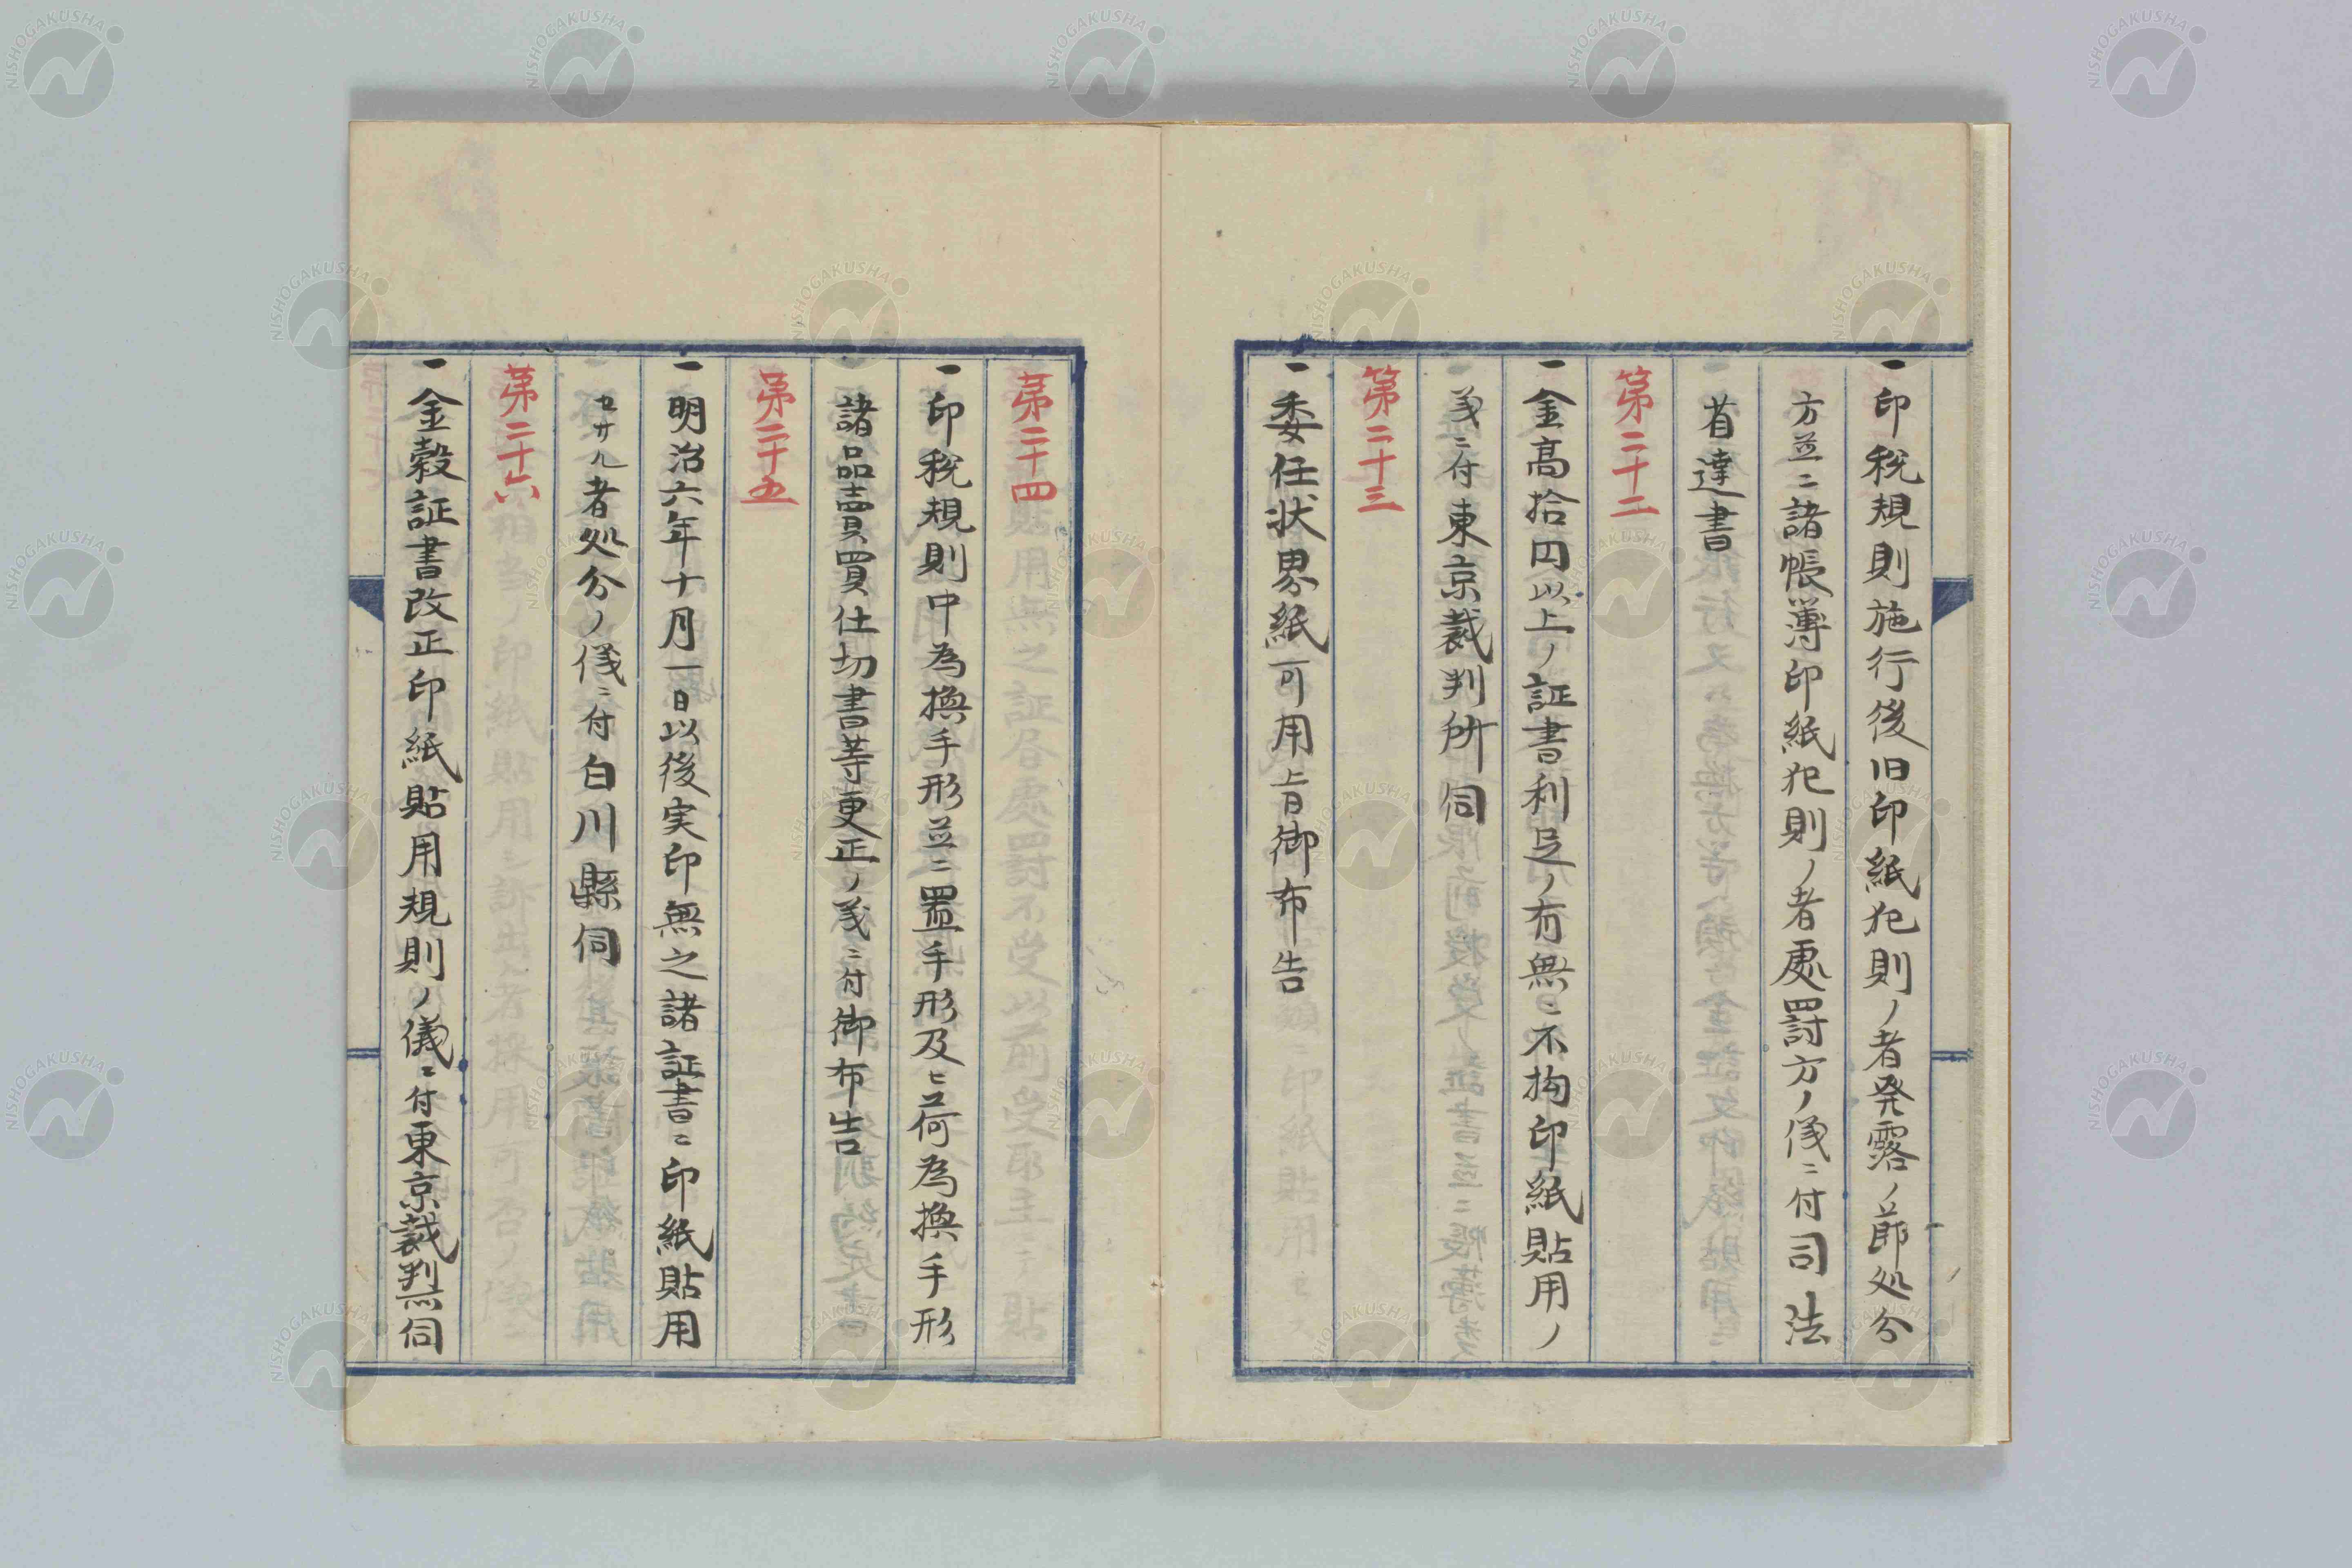 一印税規則施行後旧印紙犯則ノ者発露ノ節処分
方並ニ諸帳簿印紙犯則ノ者處罰方ノ儀ニ付司法
省達書
第二十二
一金高拾円以上ノ証書利足ノ有無ニ不拘印紙貼用ノ
義ニ付東京裁判所伺
第二十三
一委任状界紙可用旨御布告
第二十四
一印税規則中為換手形並ニ置手形及ヒ荷為換手形
諸品賣買仕切書等更正ノ義ニ付御布告
第二十五
一明治六年十月一日以後実印無之諸証書ニ印紙貼用
セサル者処分ノ儀ニ付白川縣伺
第二十六
一金穀証書改正印紙貼用規則ノ儀ニ付東京裁判所伺
NISHOGAKUSHA